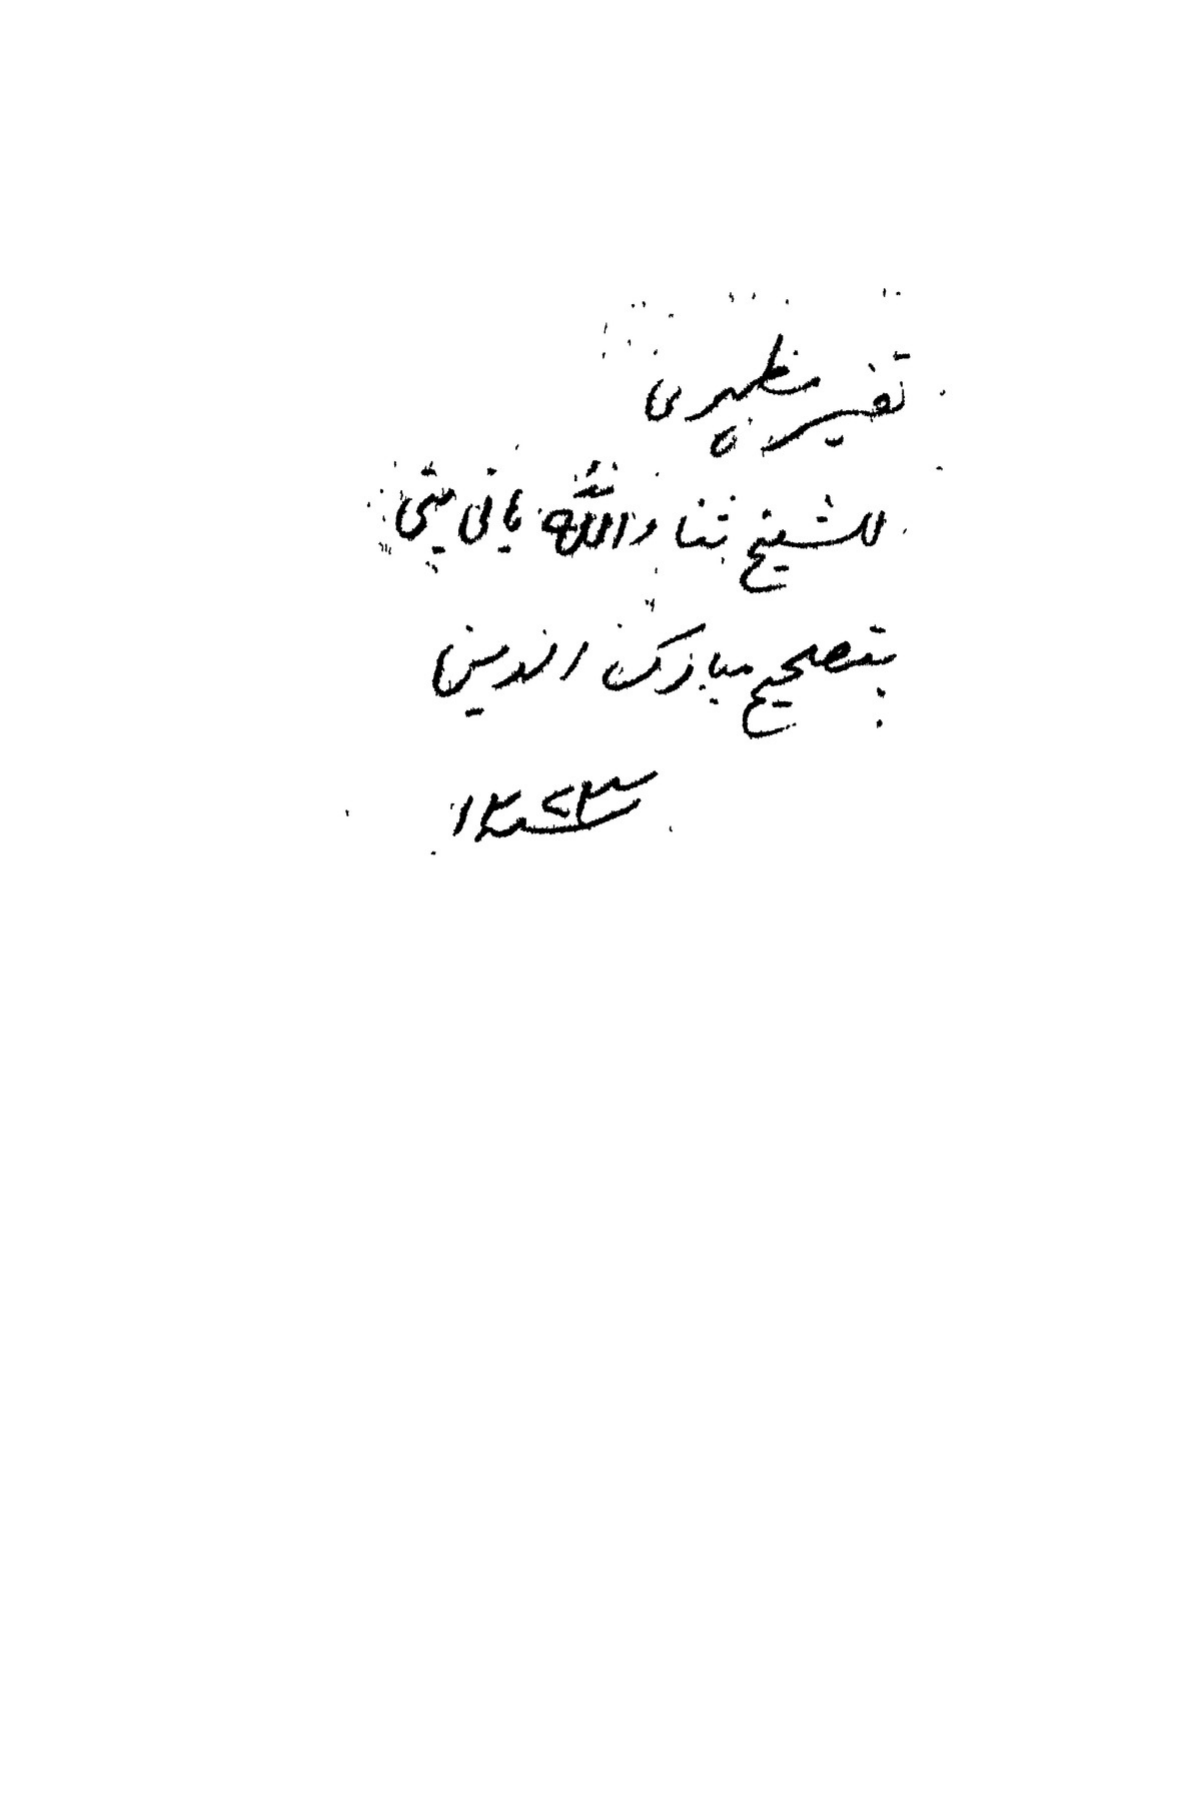 تفسیر مظہری
للشیخ ثناء اللہ پانی پتی
بتصحیح مبارک الدین